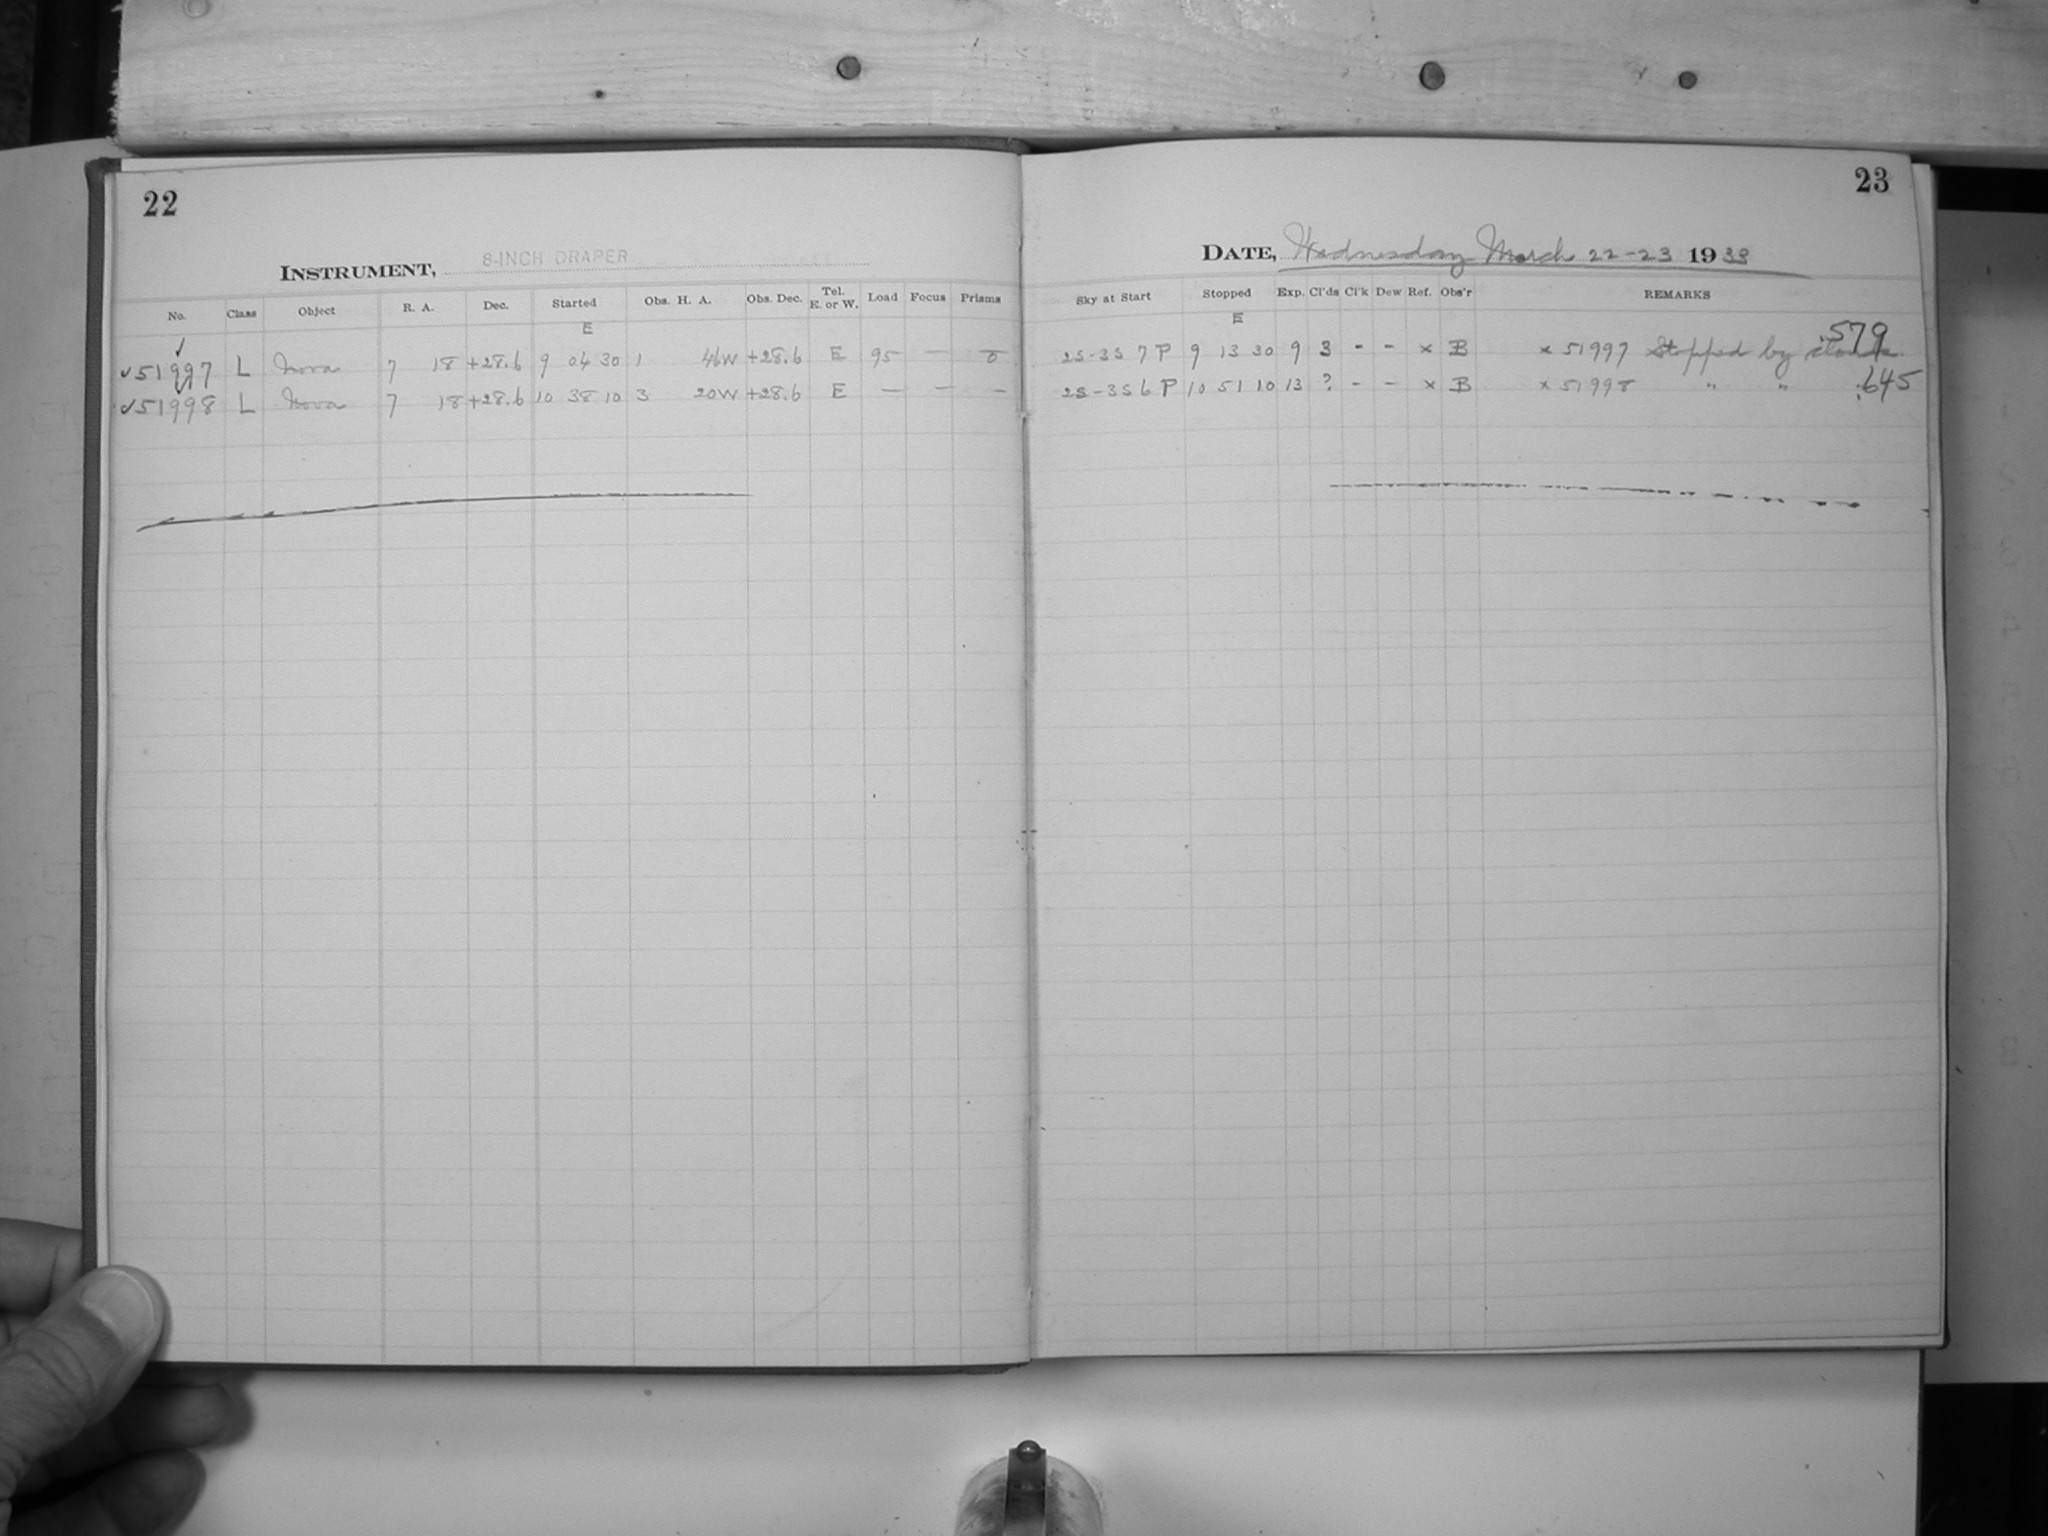 22
INSTRUMENT, 8-INCH DRAPER
No. Class Object R. A. Dec. Started Obs. H. A. Obs. Dec. Tel. E. or W. Load Focus Prisms
E
✓51997 L Nova 7 18 +28.6 9 04 30 1 46W +28.6 E 95 — 0
✓51998 L Nova 7 18 +28.6 10 38 10 3 20W +28.6 E — — —
23
DATE, Wednesday March 22-23 1933
Sky at Start Stopped Exp. Cl'ds Cl'k Dew Ref. Obs'r REMARKS
E
2S-3S 7 P 9 13 30 9 3 - - x B x 51997 Stopped by clouds. .579
2S-3S 6 P 10 51 10 13 ? - - x B x 51998 " " .645